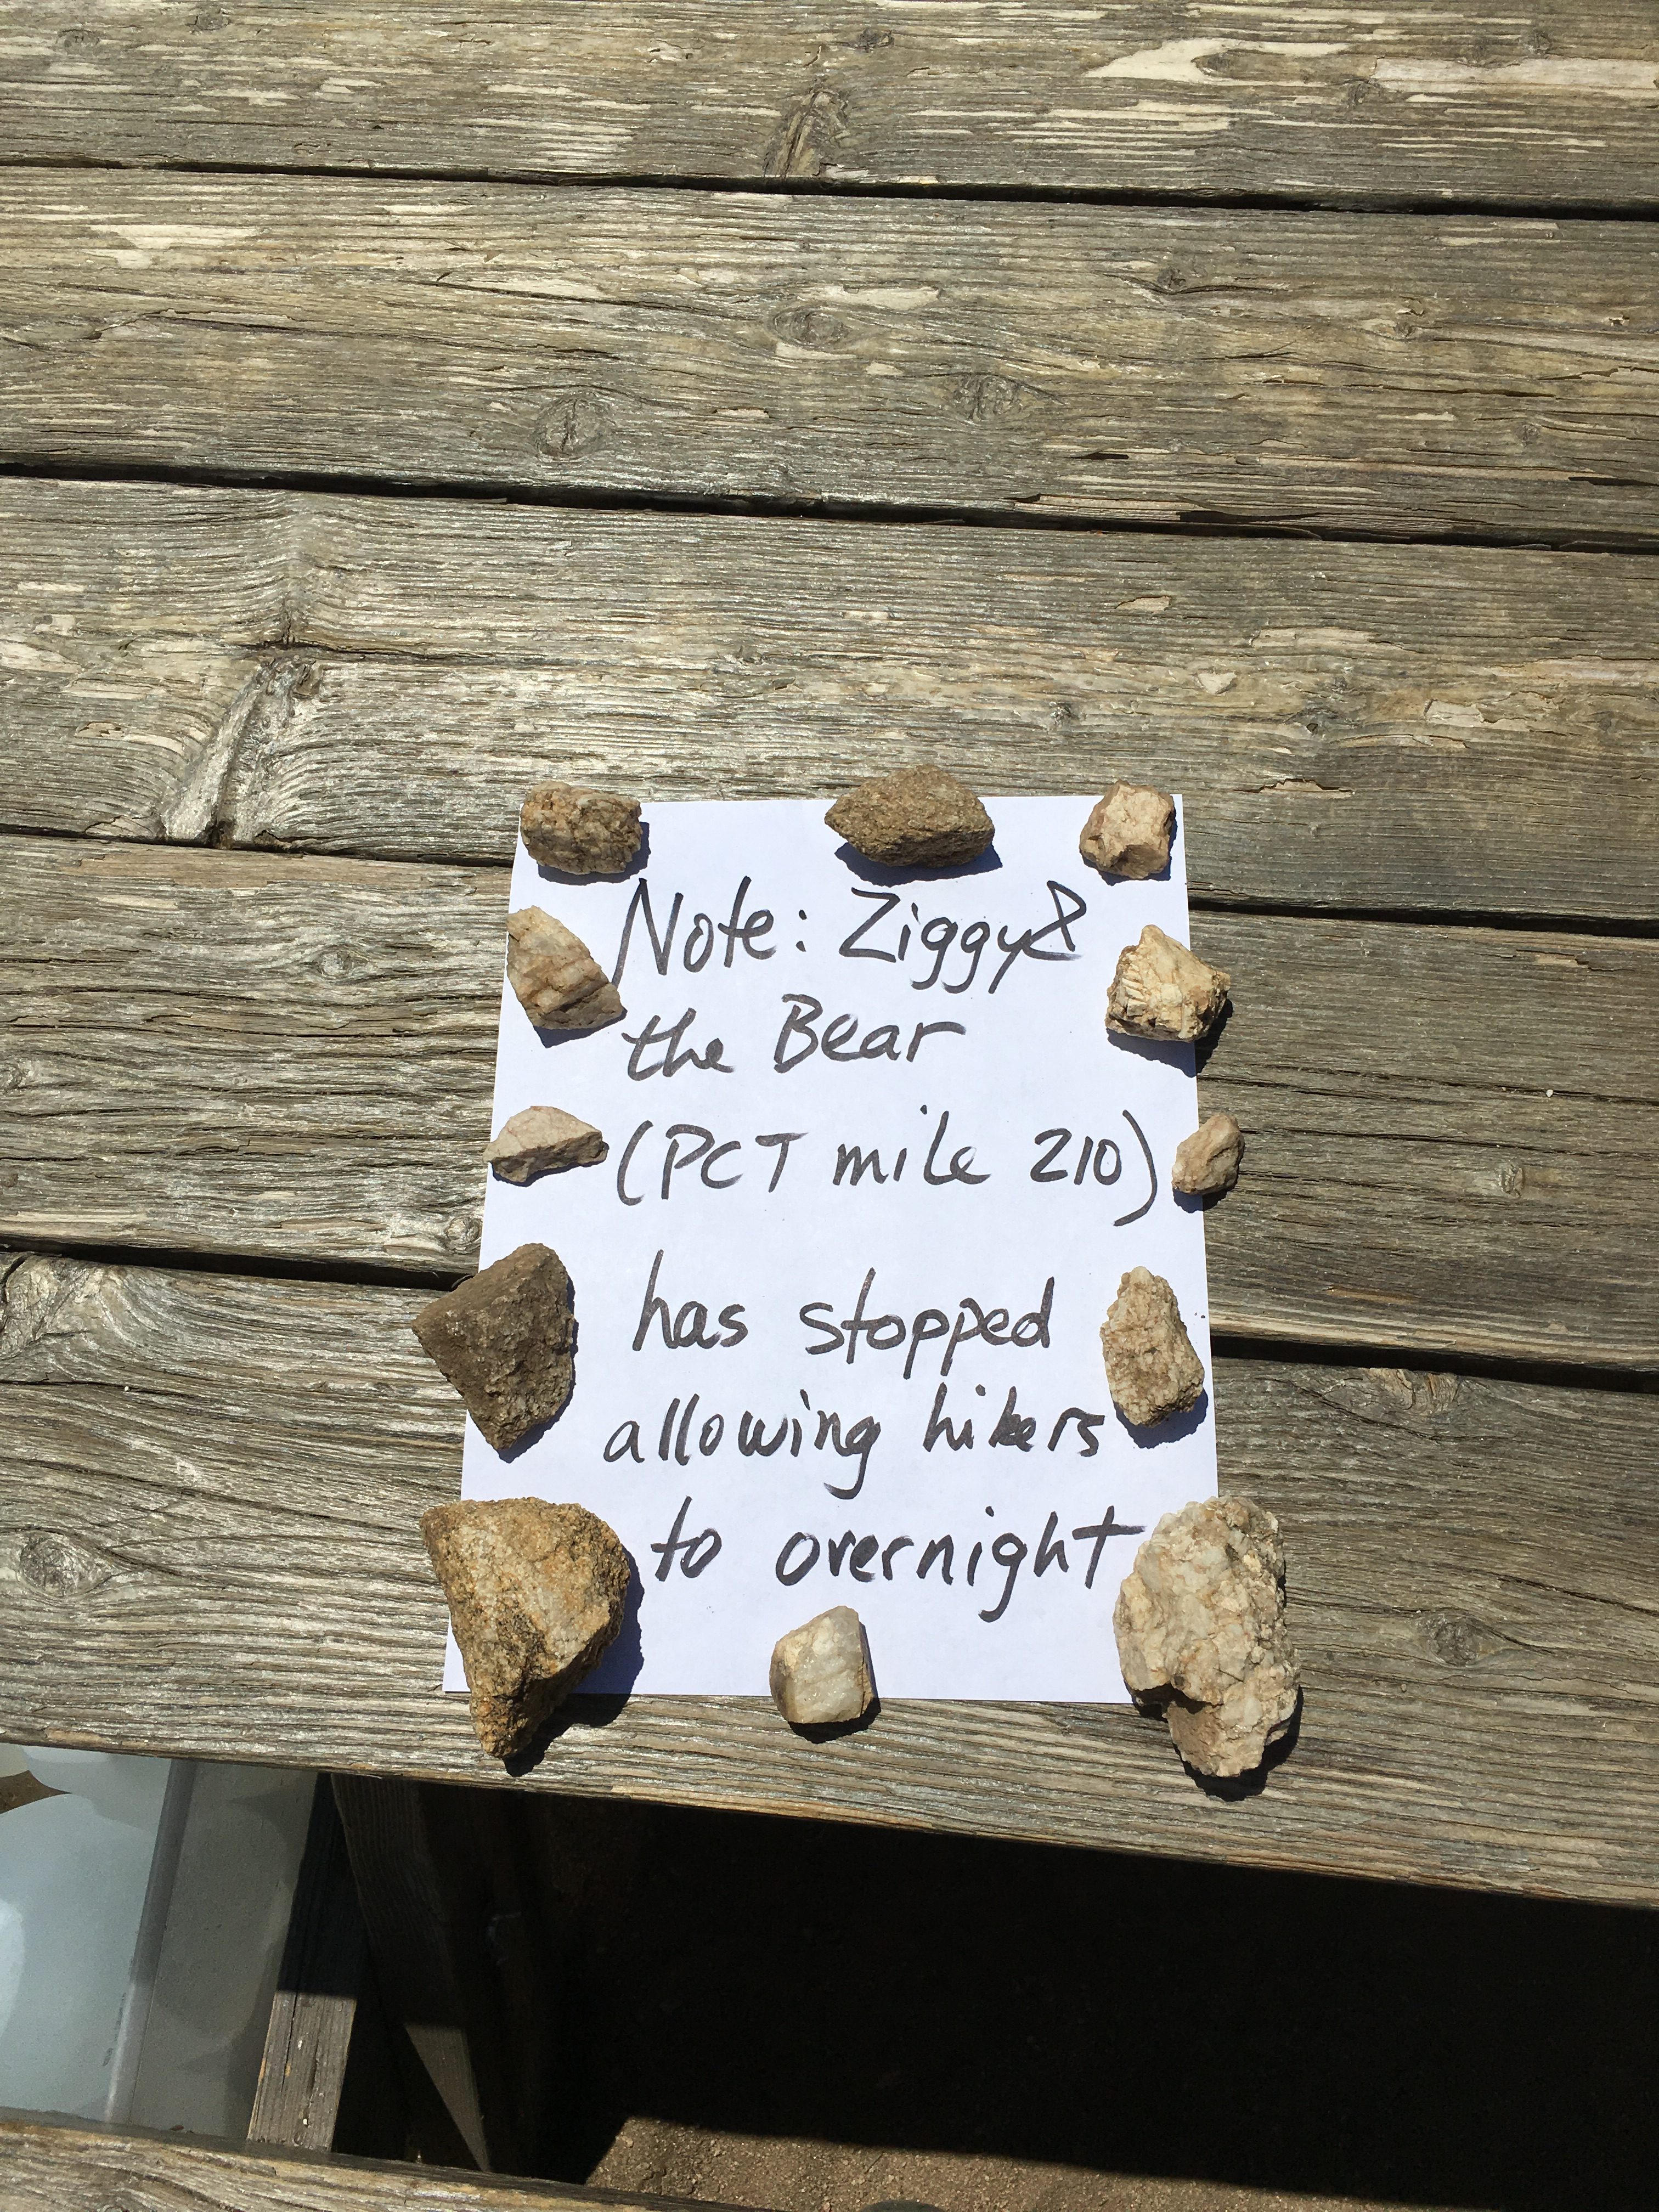 Note: Ziggy &
the Bear
(PCT mile 210)
has stopped
allowing hikers
to overnight